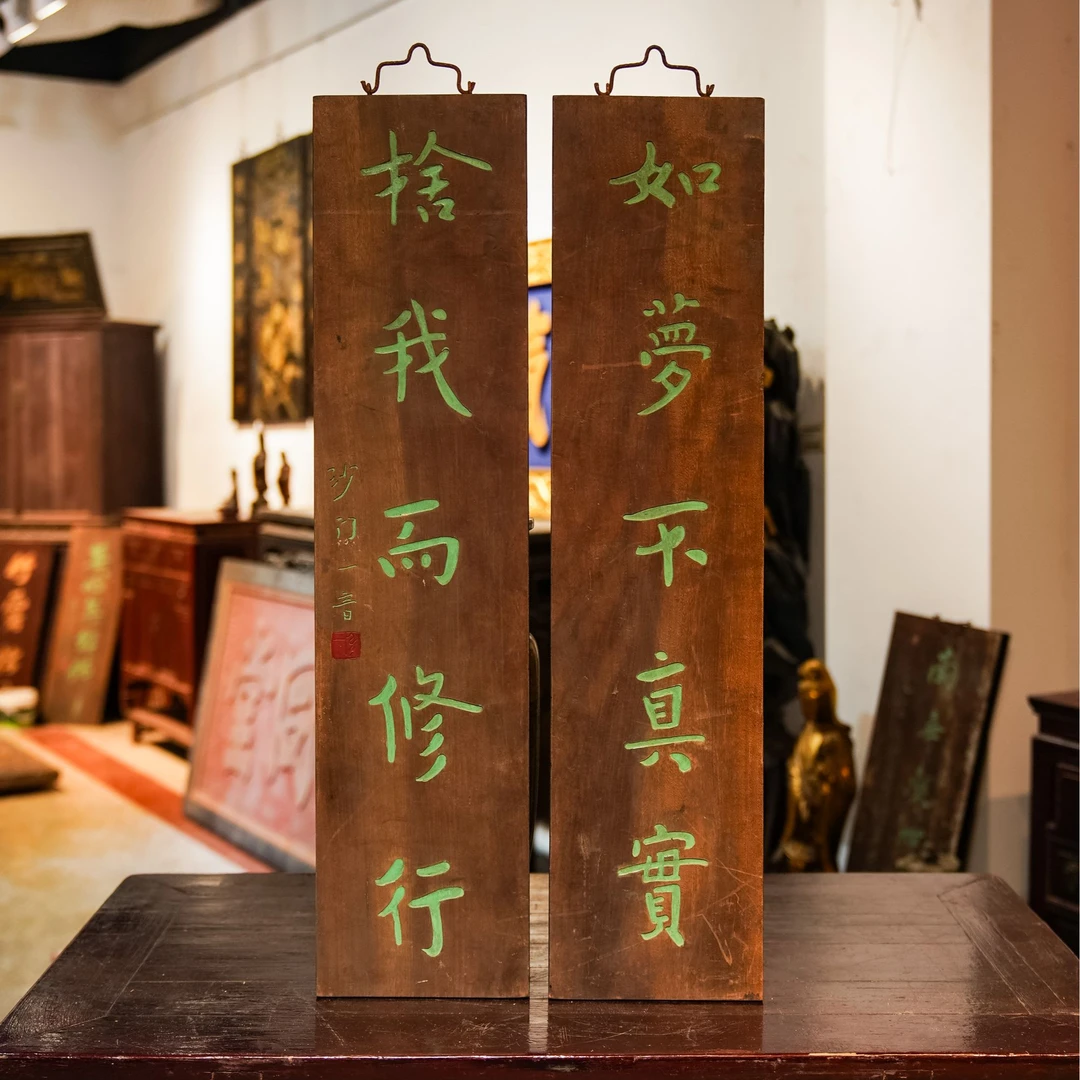 如夢不真實
捨我而修行
沙門一音